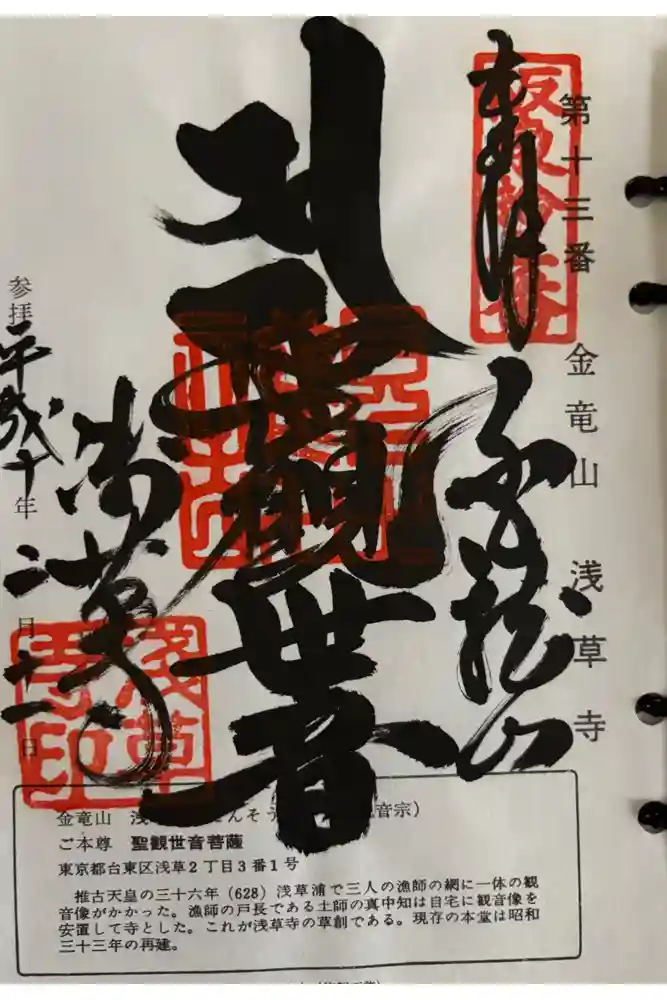 第十三番 金竜山 浅草寺
奉拝
坂東拾三番
金龍山
聖観世音
浅草寺
参拝 平成十年二月十一日
浅草寺印
金竜山 浅
んそう
音宗）
ご本尊 聖観世音菩薩
東京都台東区浅草2丁目3番1号
推古天皇の三十六年（628）浅草浦で三人の漁師の網に一体の観
音像がかかった。漁師の戸長である土師の真中知は自宅に観音像を
安置して寺とした。これが浅草寺の草創である。現存の本堂は昭和
三十三年の再建。